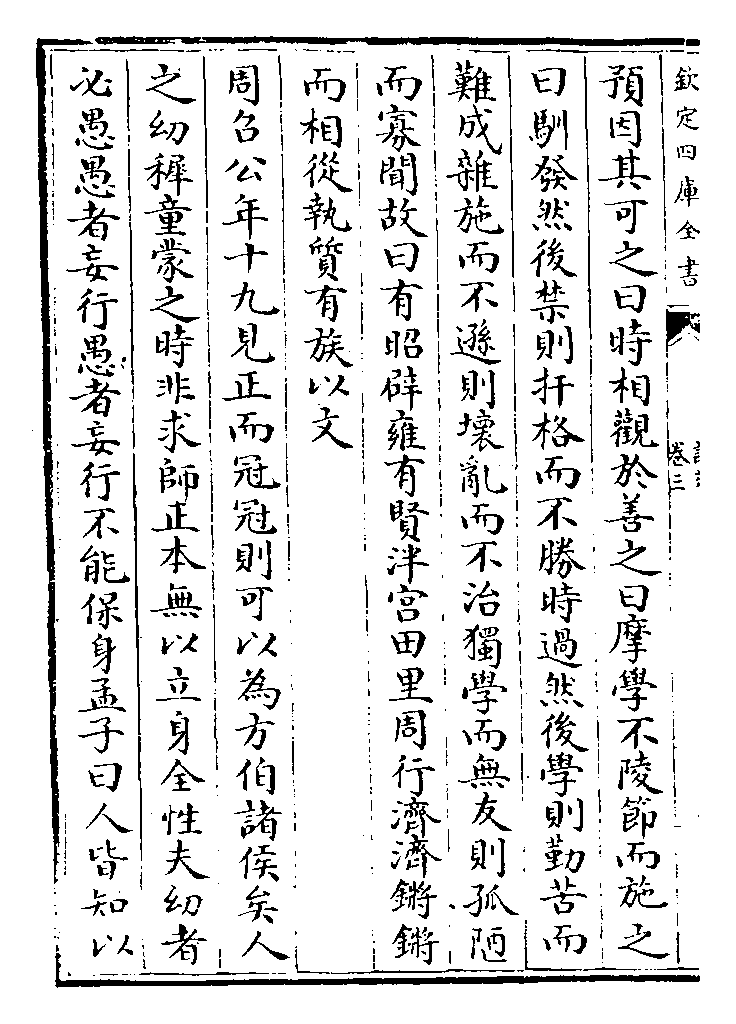 欽定四庫全書
卷三
預因其可之曰時相觀於善之曰摩學不陵節而施之
曰馴發然後禁則扞格而不勝時過然後學則勤苦而
難成雜施而不遜則壞亂而不治獨學而無友則孤陋
而寡聞故曰有昭辟雍有賢泮宫田里周行濟濟鏘鏘
而相從執質有族以文
周召公年十九見正而冠冠則可以為方伯諸侯矣人
之幼穉童蒙之時非求師正本無以立身全性夫幼者
必愚愚者妄行愚者妄行不能保身孟子曰人皆知以